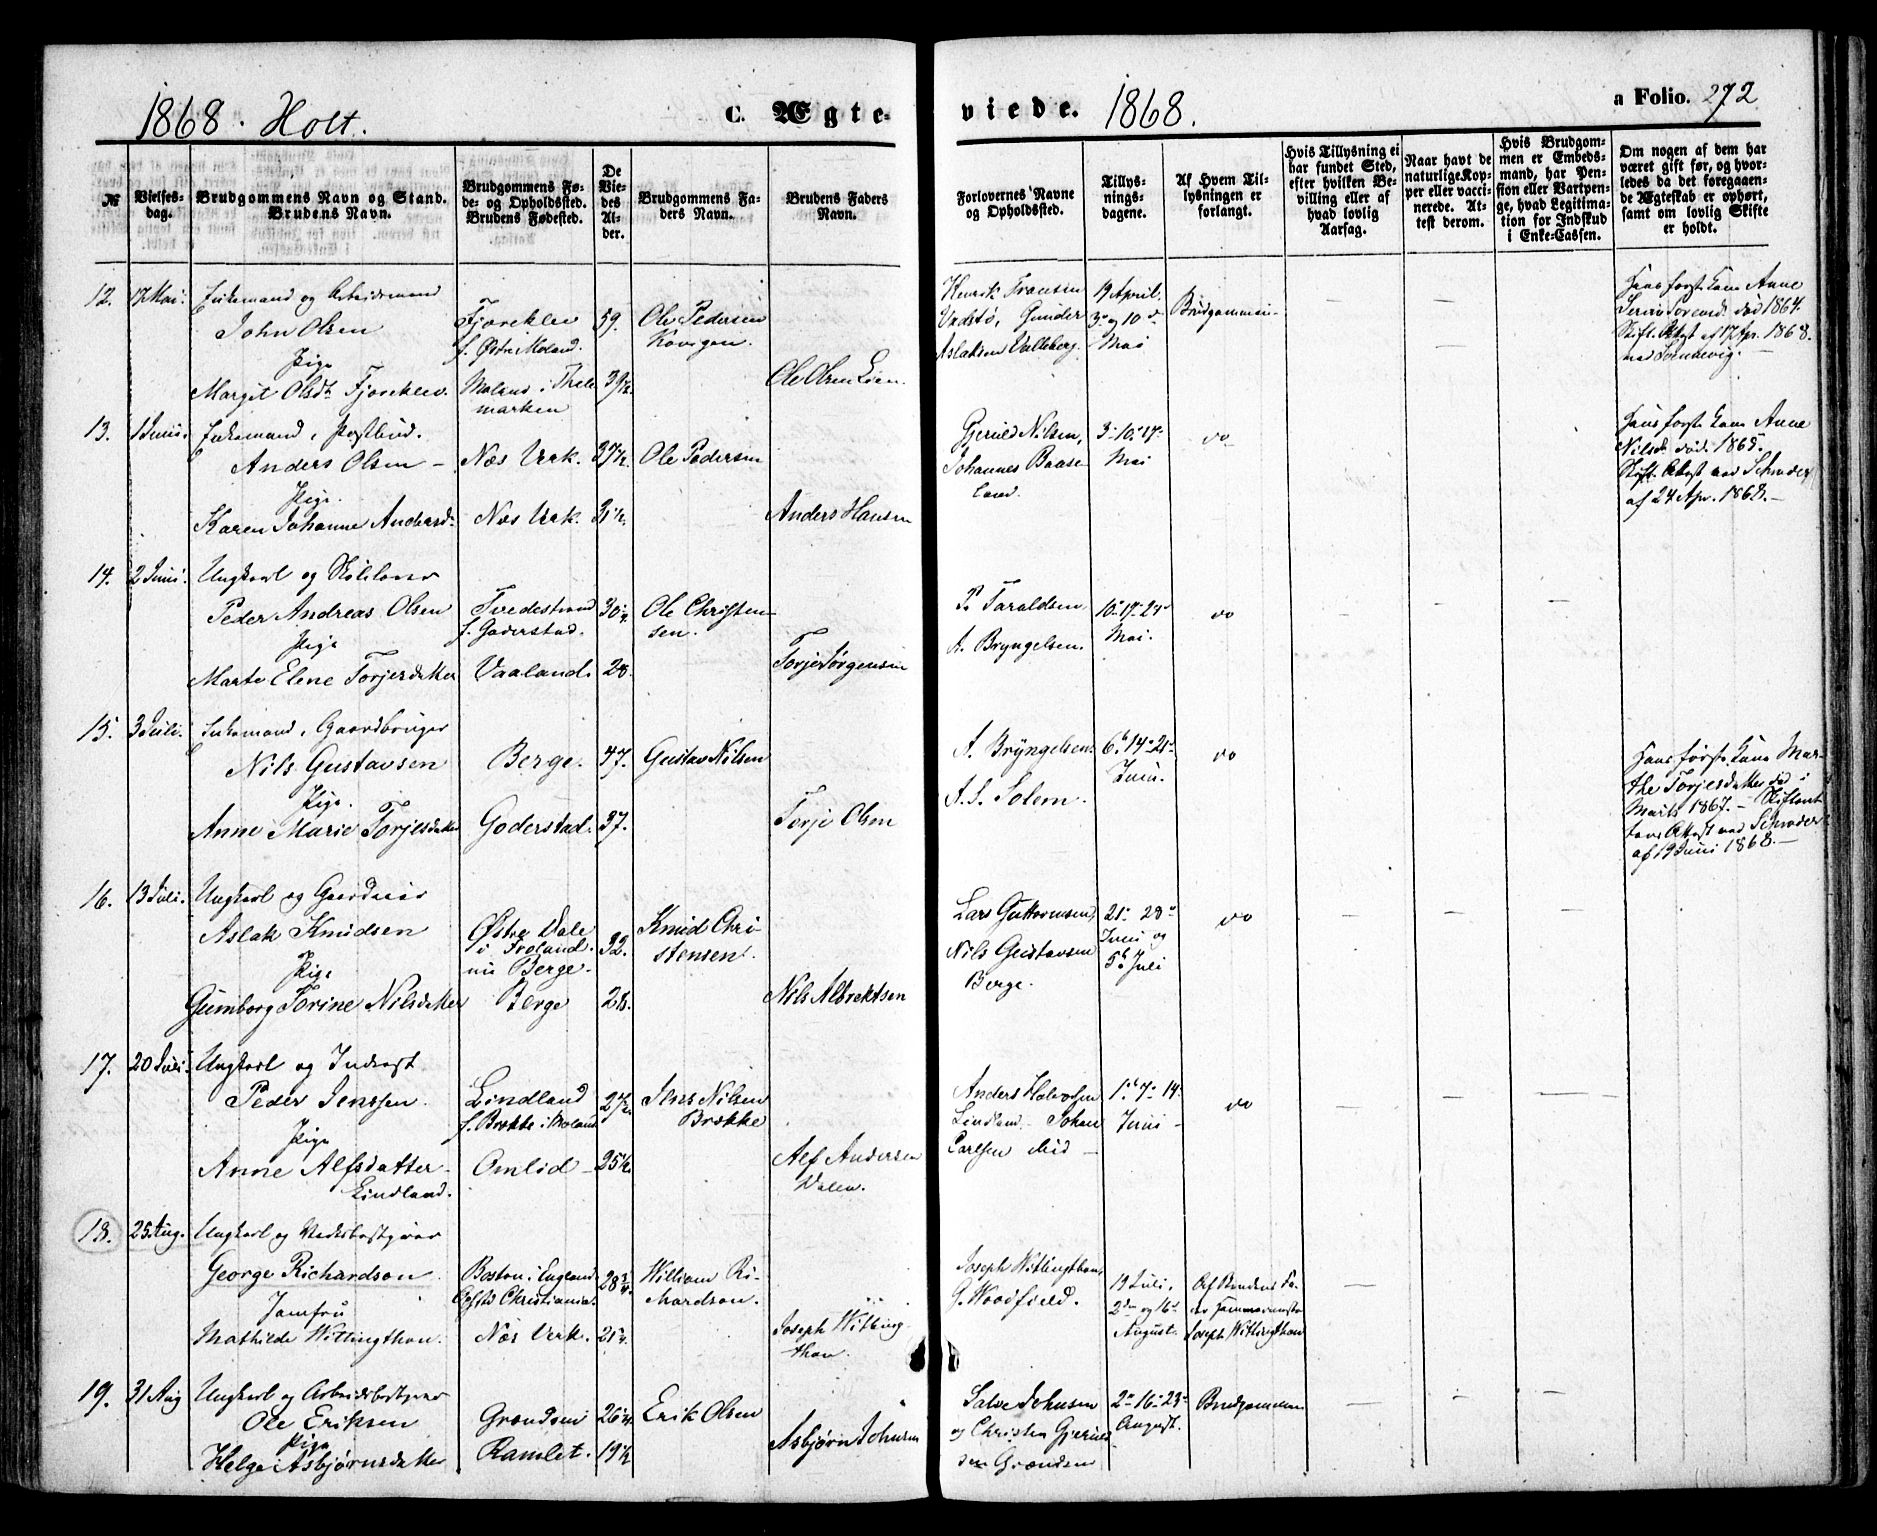 1868. Holt.
C. Ægte-
viede.
1868.
a Folio. 272
№
Vielses-
dag.
Brudgommens Navn og Stand.
Brudens Navn.
Brudgommens Fø-
de- og Opholdssted.
Brudens Fødested.
De
Vie-
des
Al-
der.
Brudgommens Fa-
ders Navn.
Brudens Faders
Navn.
Forlovernes Navne
og Opholdssted.
Tillys-
nings-
dagene.
Af Hvem Til-
lysningen er
forlangt.
Hvis Tillysning ei
har fundet Sted,
efter hvilken Be-
villing eller af
hvad lovlig
Aarsag.
Naar havt de
naturlige Kop-
per eller vacci-
nerede. At-
test derom.
Hvis Brudgom-
men er Embeds-
mand, har Pen-
sion eller Vartpen-
ge, hvad Legitima-
tion for Indskud
i Enke-Cassen.
Om nogen af dem har
været gift før, og hvor-
ledes da det foregaaen-
de Ægteskab er ophørt,
samt om lovlig Skifte
er holdt.
12. 17 Mai. Enkemand og Arbeidsmand
John Olsen
Pige
Margit Olsdt Fjoreklev.
Fjoreklev
f. Østre Moland.
Moland i Thele
marken
59.
39½
Ole Pedersen
Ole Olsen Lien.
Henrik Fransen
Gunder
Aslaksen Valleberg.
19 April.
3o og 10de
Mai
Brudgommen
Hans første Kone Anne
død 1864.
Skift. Attest af 17 Apr. 1868.
13. 1 Juni. Enkemand, Postbud.
Anders Olsen –
Pige.
Karen Johanne Andersd.
Næs Verk.
Næs Verk.
37½
31½
Ole Pedersen
Anders Hansen
Gjeruld Nilsen,
Johannes Baase-
land.
3- 10- 17-
Mai
do
Hans første Kone Anne
Nilsd. død. 1865.
Skift. Attest ved Schrøder
af 24 Apr. 1868. –
14. 2 Juni. Ungkarl og Skolelærer
Peder Andreas Olsen
Pige
Marte Elene Torjesdatter
Tvedestrand
f. Goderstad.
Vaaland.
30¼
28.
Ole Christen-
sen.
Torje Jørgensen
P. Taraldsen,
A. Bryngelsen.
10- 17- 24-
Mai.
do
15. 3 Juli. Enkemand, Gaardbruger
Nils Gustavsen
Pige.
Anne Marie Torjesdatter
Berge.
Goderstad.
47.
37.
Gustav Nilsen
Torje Olsen
A. Bryngelsen.
A. S. Solem.
6- 14- 21-
Juni.
do
Hans første Kone Mar-
the Torjesdatter død i
Marts 1867. –
Attest ved Schrøder
af 19 Juni 1868. –
16. 13 Juli. Ungkarl og Gaardeier
Aslak Knudsen
Pige
Gumborg Torine Nilsdatter
Østre Dale
i Froland.
nu Berge.
Berge
32.
28.
Knud Chri-
stensen.
Nils Albrektsen
Lars Guttormsen,
Nils Gustavsen
Berge.
21- 28-
Juni og
5te Juli
do
17. 20 Juli. Ungkarl og Inderst
Peder Jenssen.
Pige
Anne Alfsdatter
Lindland.
Lindland
f. Brekke i Moland
Omlid –
27½
25½
Jens Nilsen
Brekke
Alf Andersen
Dalen.
Anders Halvorsen
Lindland. Johan
Carlsen Mid –
1- 7- 14-
Juni –
do
18. 25 Aug. Ungkarl og Værksbestyrer
George Richardson.
Jomfru
Mathilde Witlingthon.
Boston i England
Opholds Christiania.
Næs Verk.
28¾
21¼
William Ri-
chardson.
Joseph Witling-
thon.
Joseph Witlingthon,
G. Woodfield.
19 Juli,
2den og 16de
August.
Af Brudens Fa-
der
Joseph Witlingthon
19. 31 Aug Ungkarl og Arbeidsbestyrer
Ole Eriksen
Pige
Helge Asbjørnsdatter
Grændsen
Ramlet.
26¼
19½
Erik Olsen
Asbjørn Johnsen
Salve Johnsen
og Christen Gjeruld-
sen Grændsen
2- 16- 23-
August.
Brudgommen